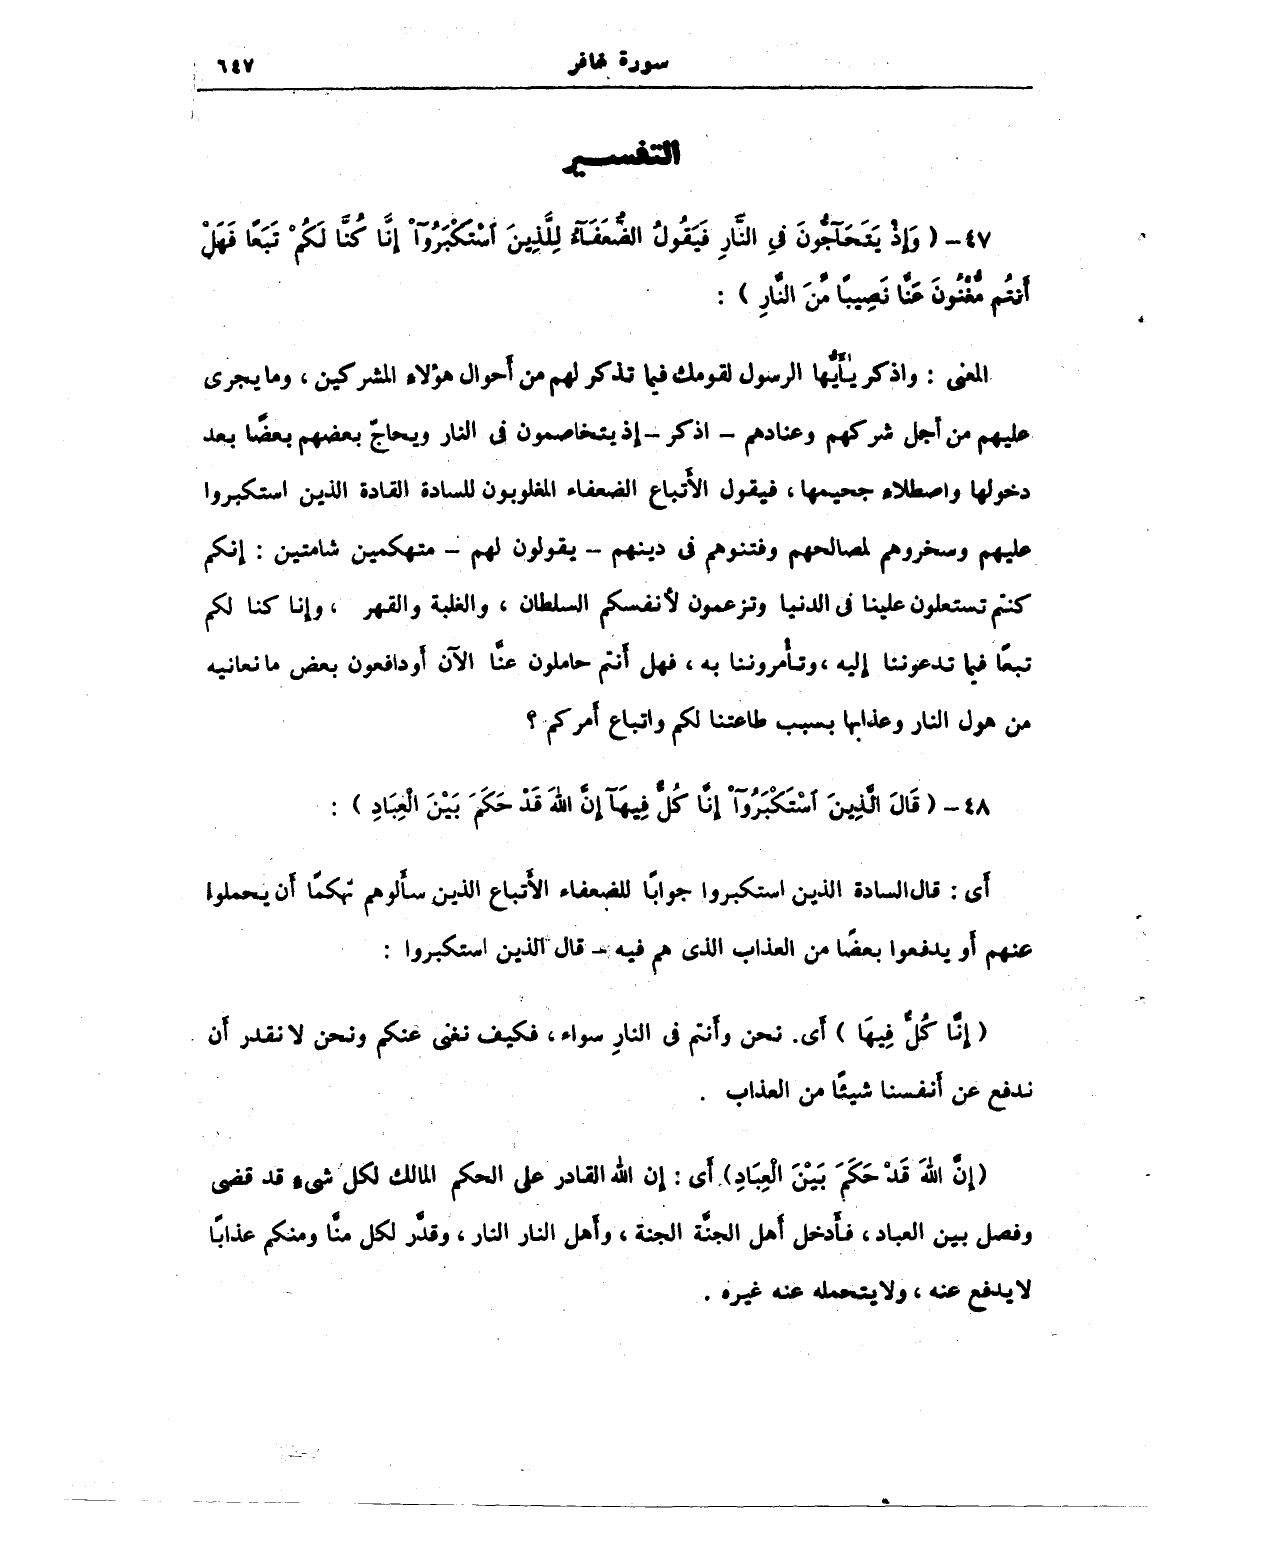 سورة غافر
٦٤٧
التفسير
٤٧ - ( وَإِذْ يَتَحَآجُّونَ فِي النَّارِ فَيَقُولُ الضُّعَفَآءُ لِلَّذِينَ اسْتَكْبَرُوٓاْ إِنَّا كُنَّا لَكُمْ تَبَعًا فَهَلْ
أَنتُم مُّغْنُونَ عَنَّا نَصِيبًا مِّنَ النَّارِ ) :
المعنى : واذكر يٰأَيُّها الرسول لقومك فيما تذكر لهم من أحوال هؤلاء المشركين ، وما يجرى
عليهم من أجل شركهم وعنادهم - اذكر - إذ يتخاصمون فى النار ويحاجّ بعضهم بعضًا بعد
دخولها واصطلاء جحيمها ، فيقول الأَتباع الضعفاء المغلوبون للسادة القادة الذين استكبروا
عليهم وسخروهم لمصالحهم وفتنوهم فى دينهم - يقولون لهم - متهكمين شامتين : إنكم
كنتم تستعلون علينا فى الدنيا وتزعمون لأنفسكم السلطان ، والغلبة والقهر ، وإنا كنا لكم
تبعًا فيما تدعوننا إليه ، وتأْمروننا به ، فهل أَنتم حاملون عنَّا الآن أو دافعون بعض ما نعانيه
من هول النار وعذابها بسبب طاعتنا لكم واتباع أَمركم ؟
٤٨ - ( قَالَ الَّذِينَ اسْتَكْبَرُوٓاْ إِنَّا كُلٌّ فِيهَآ إِنَّ اللهَ قَدْ حَكَمَ بَيْنَ الْعِبَادِ ) :
أَى : قال السادة الذين استكبروا جوابًا للضعفاء الأَتباع الذين سأَلوهم تهكمًا أَن يحملوا
عنهم أَو يدفعوا بعضًا من العذاب الذى هم فيه - قال الذين استكبروا :
( إِنَّا كُلٌّ فِيهَا ) أَى. نحن وأَنتم فى النارِ سواء ، فكيف نغنى عنكم ونحن لا نقدر أَن
ندفع عن أَنفسنا شيئًا من العذاب .
(إِنَّ اللهَ قَدْ حَكَمَ بَيْنَ الْعِبَادِ) أَى : إن الله القادر على الحكم المالك لكل شىءٍ قد قضى
وفصل بين العباد ، فأَدخل أَهل الجنَّة الجنة ، وأَهل النار النار ، وقدَّر لكل منَّا ومنكم عذابًا
لا يدفع عنه ، ولا يتحمله عنه غيره .